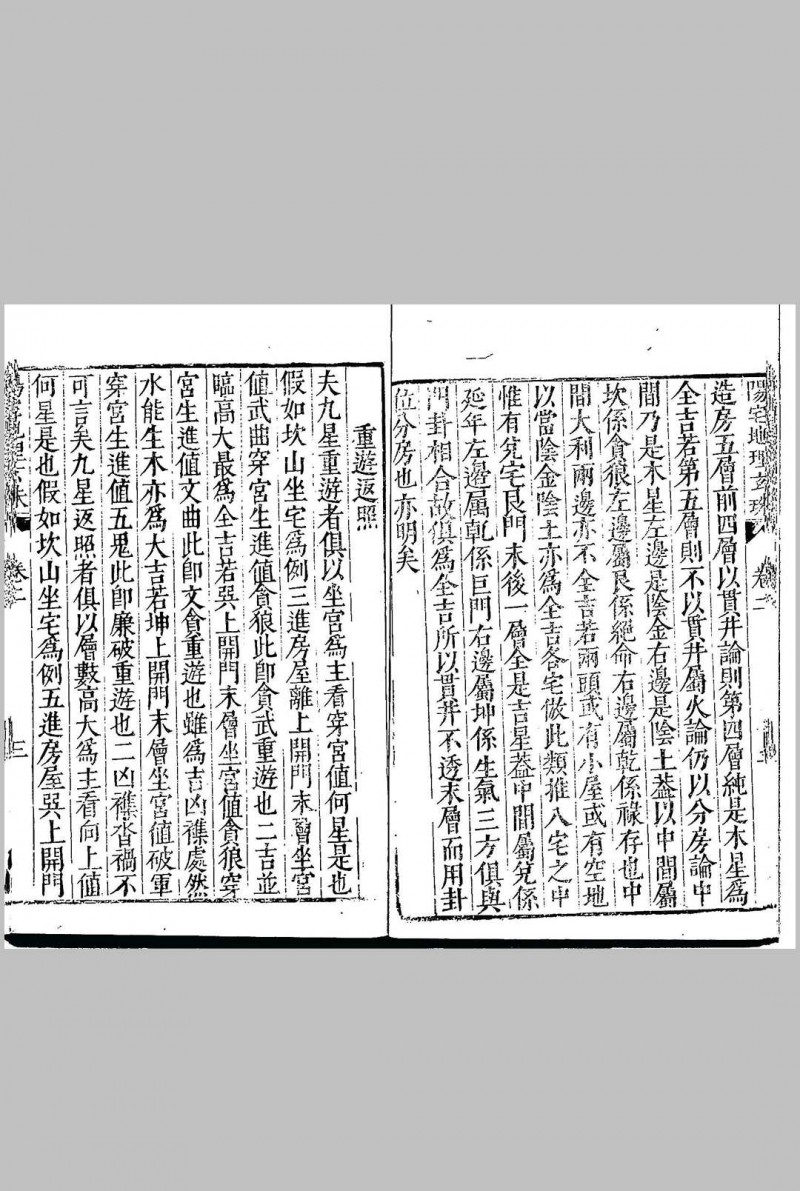 陽宅地理玄珠 卷二
造房五層前四層以貫井論則第四層純是木星爲
全吉若第五層則不以貫井屬火論仍以分房論中
間乃是木星左邊是陰金右邊是陰土葢以中間屬
坎係貪狼左邊屬艮係絶命右邊屬乾係祿存也中
間大利兩邊亦不全吉若兩頭或有小屋或有空地
以當陰金陰土亦爲全吉各宅倣此類推八宅之中
惟有兌宅艮門末後一層全是吉星葢中間屬兌係
延年左邊屬乾係巨門右邊屬坤係生氣三方俱與
門卦相合故俱爲全吉所以貫井不透末層而用卦
位分房也亦明矣
重遊返照
夫九星重遊者俱以坐宮爲主看穿宮値何星是也
假如坎山坐宅爲例三進房屋離上開門末層坐宮
値武曲穿宮生進値貪狼此卽貪武重遊也二吉並
臨高大最爲全吉若巽上開門末層坐宮値貪狼穿
宮生進値文曲此卽文貪重遊也雖爲吉凶襍處然
水能生木亦爲大吉若坤上開門末層坐宮値破軍
穿宮生進値五鬼此卽廉破重遊也二凶襍沓禍不
可言矣九星返照者俱以層數高大爲主看向上値
何星是也假如坎山坐宅爲例五進房屋巽上開門
卷二 三